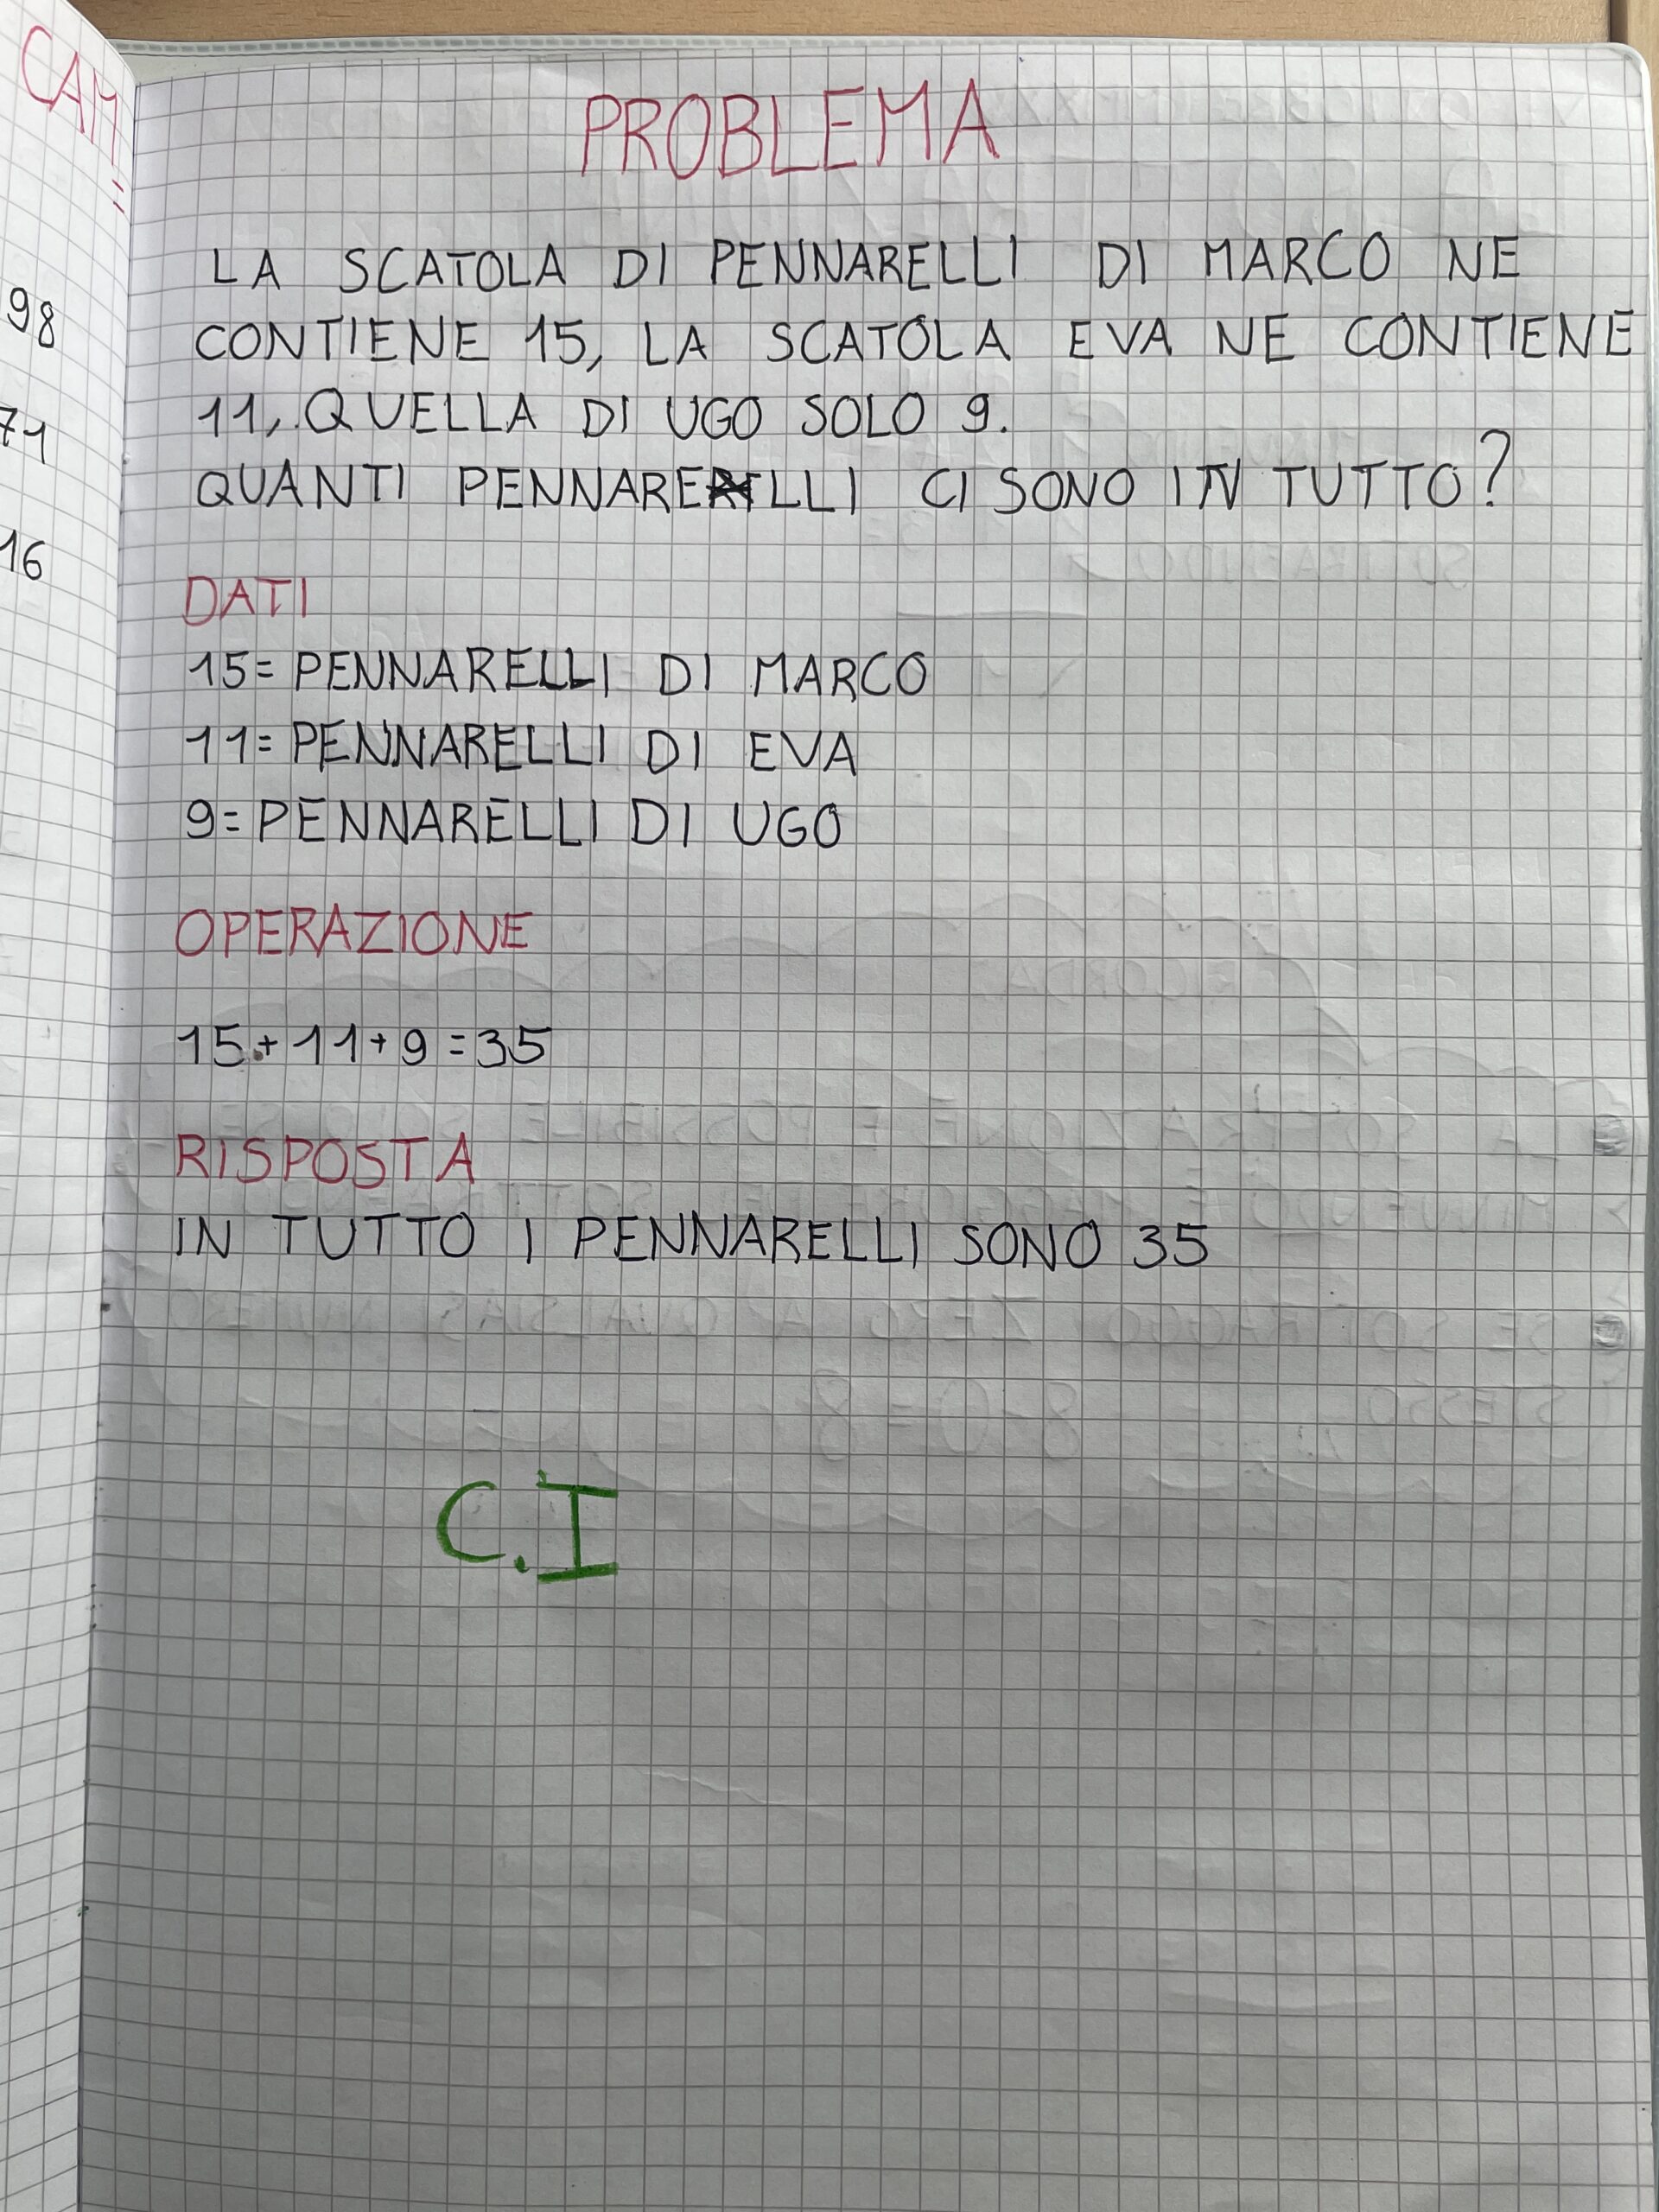 CAM
=
98
71
16
PROBLEMA
LA SCATOLA DI PENNARELLI DI MARCO NE
CONTIENE 15, LA SCATOLA EVA NE CONTIENE
11, QUELLA DI UGO SOLO 9.
QUANTI PENNARELLI CI SONO IN TUTTO?
DATI
15= PENNARELLI DI MARCO
11= PENNARELLI DI EVA
9= PENNARELLI DI UGO
OPERAZIONE
15+11+9=35
RISPOSTA
IN TUTTO I PENNARELLI SONO 35
C.I